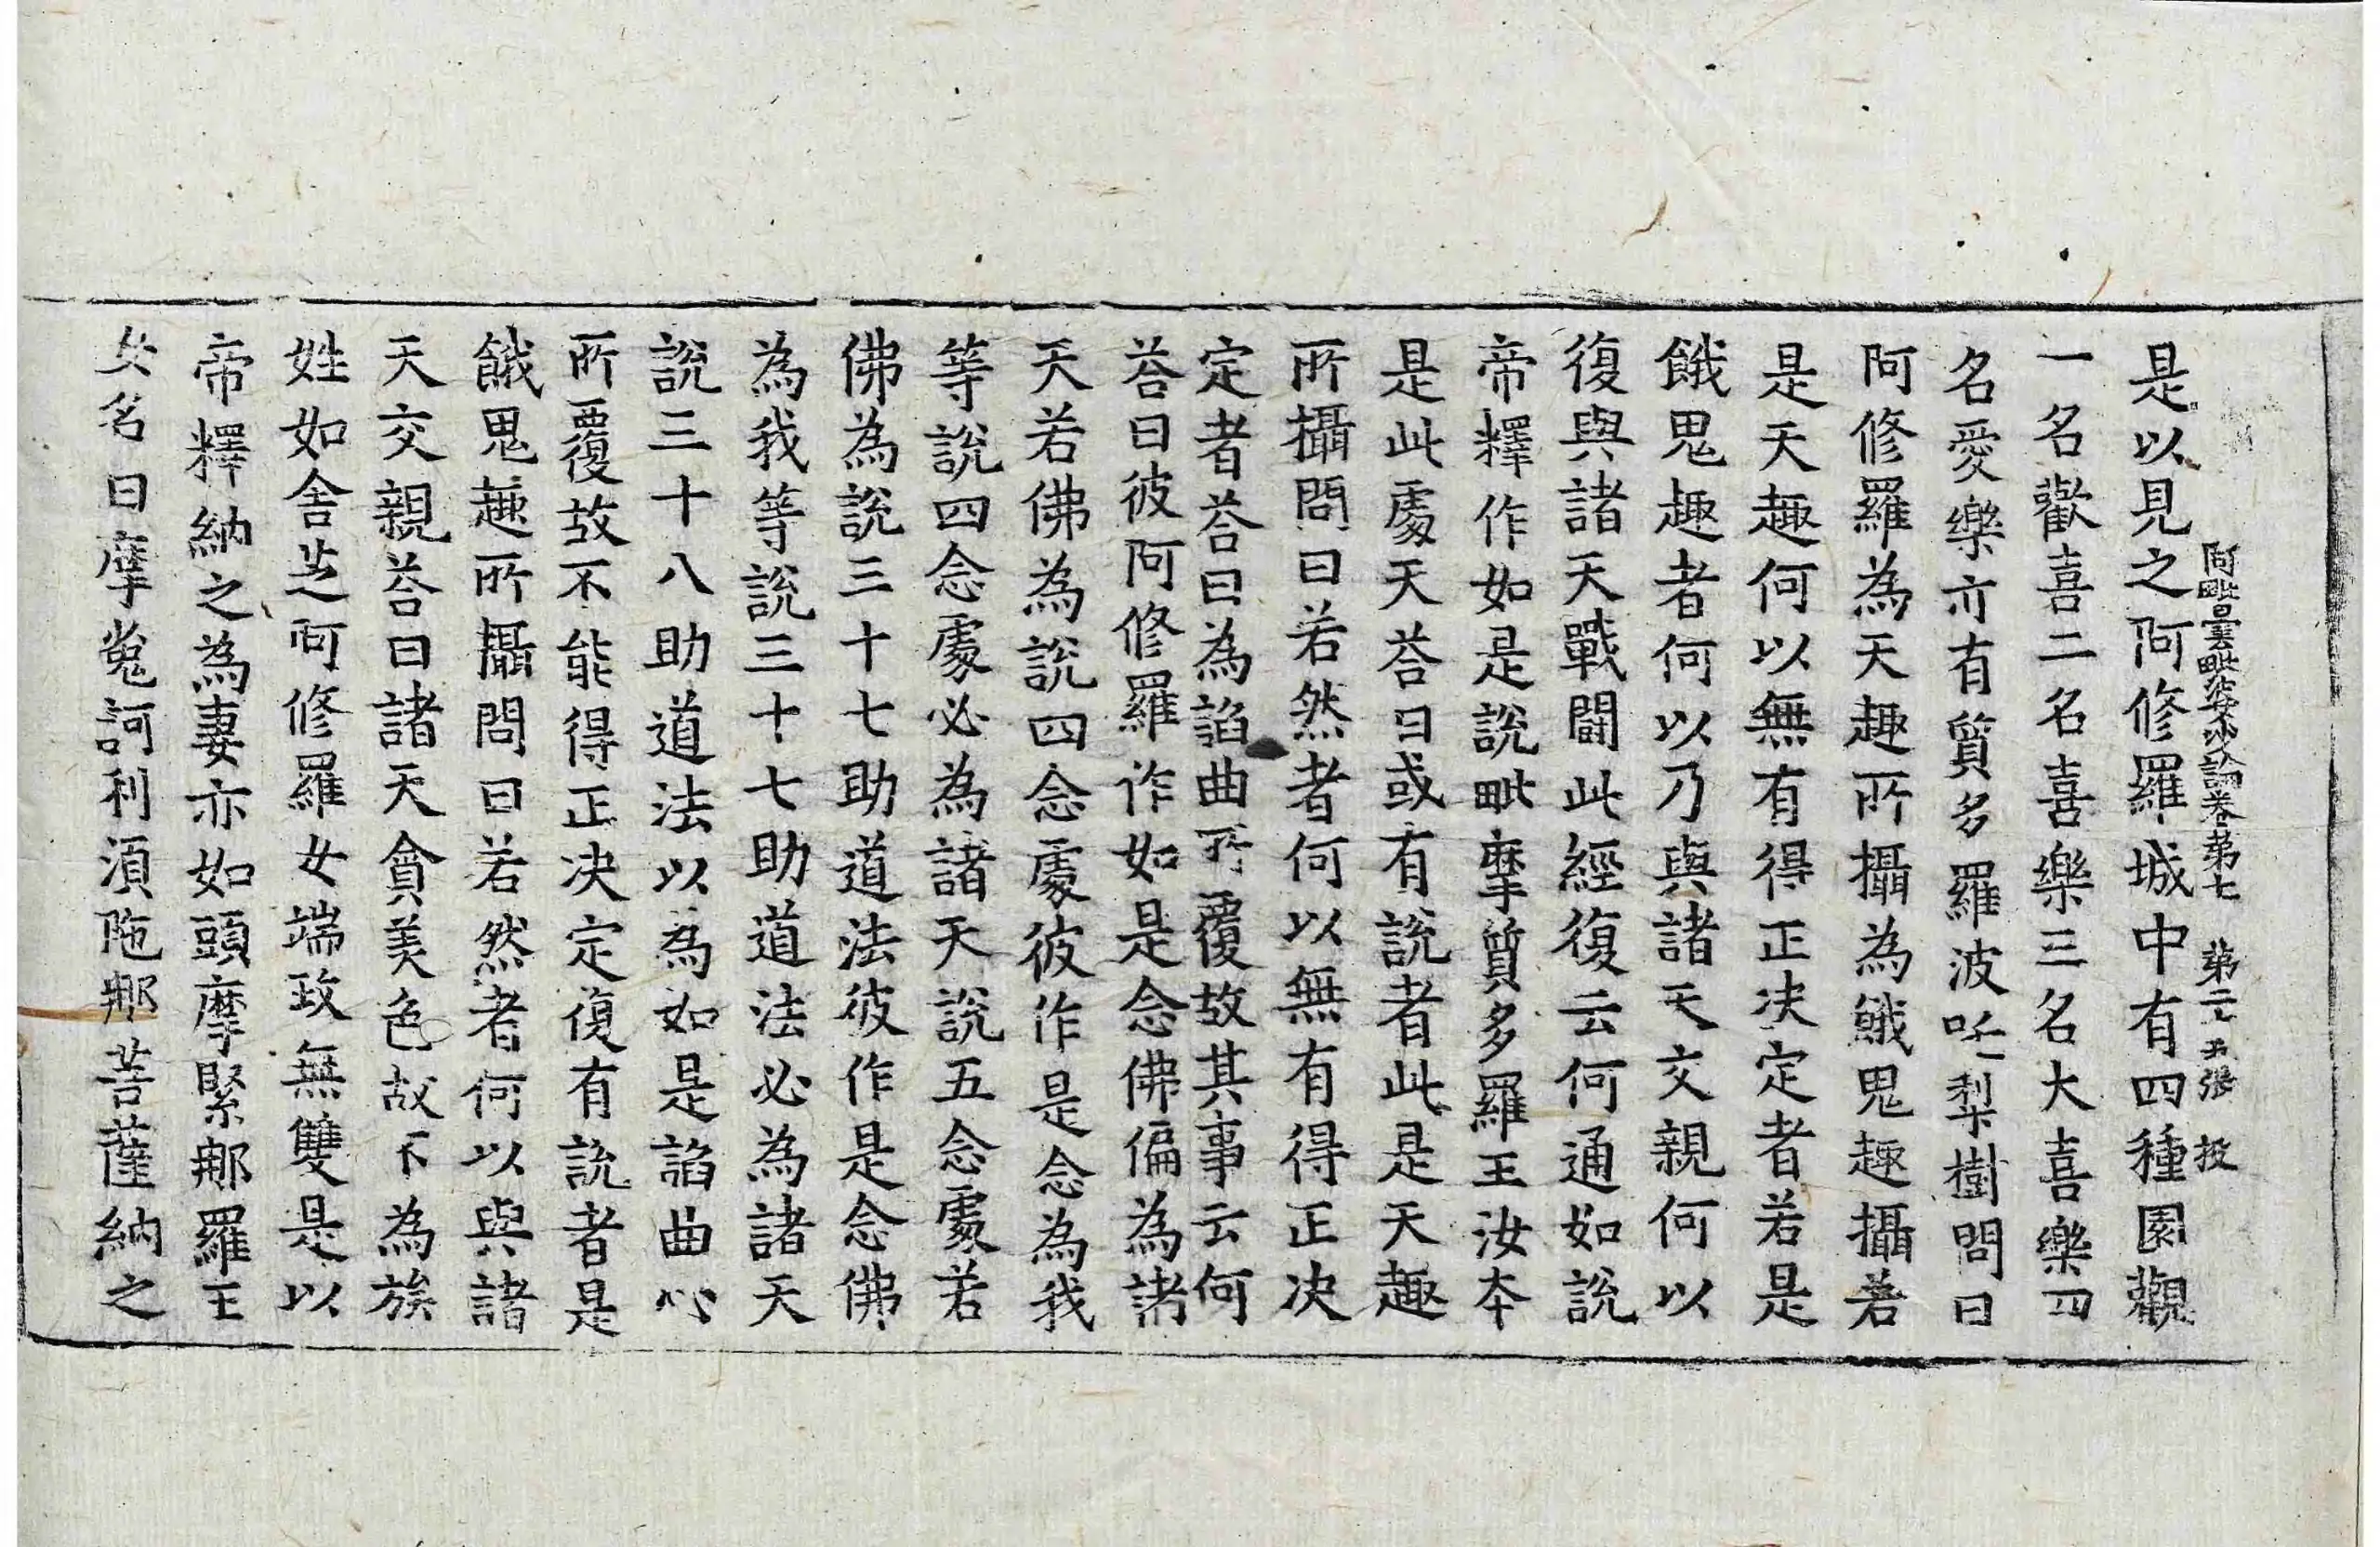 阿毗曇毗婆沙論卷第七　第二十五張　投
是以見之阿修羅城中有四種園觀
一名歡喜二名喜樂三名大喜樂四
名愛樂亦有質多羅波吒梨樹問曰
阿修羅為天趣所攝為餓鬼趣攝若
是天趣何以無有得正决定者若是
餓鬼趣者何以乃與諸天交親何以
復與諸天戰鬪此經復云何通如說
帝釋作如是說毗摩質多羅王汝本
是此處天荅曰或有說者此是天趣
所攝問曰若然者何以無有得正决
定者荅曰為諂曲所覆故其事云何
荅曰彼阿修羅作如是念佛偏為諸
天若佛為說四念處彼作是念為我
等說四念處必為諸天說五念處若
佛為說三十七助道法彼作是念佛
為我等說三十七助道法必為諸天
說三十八助道法以為如是諂曲心
所覆故不能得正决定復有說者是
餓鬼趣所攝問曰若然者何以與諸
天交親荅曰諸天貪美色故不為族
姓如舍芝阿修羅女端政無雙是以
帝釋納之為妻亦如頭摩緊那羅王
女名曰摩㝹訶利湏陁那菩薩納之